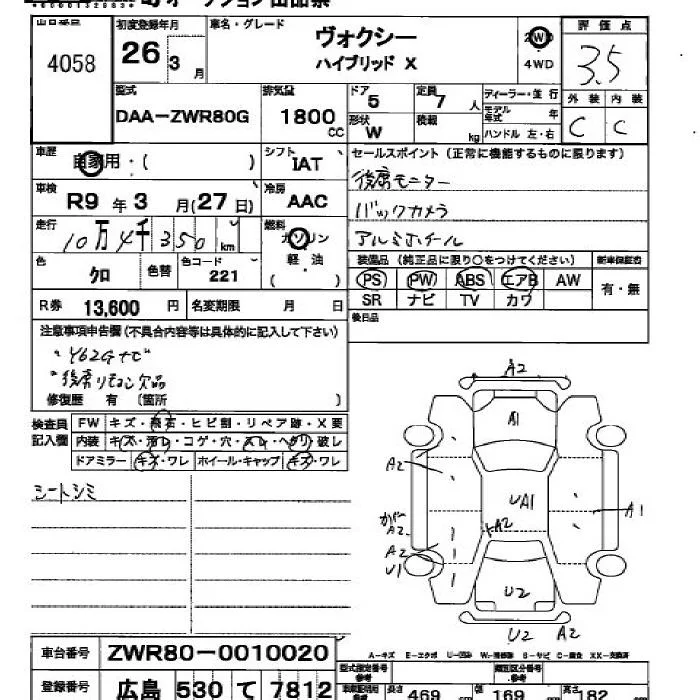 オークション出品票
出品番号 初度登録年月 車名・グレード 評価点
4058 26 3月 ヴォクシー ハイブリッド X 2WD 4WD 3.5
型式 排気量 ドア 定員 ディーラー・並行 外装 内装
DAA-ZWR80G 1800 CC 5 7人 モデル年式 年 C C
形状 W 積載 kg ハンドル 左・右
車歴 自家用・( ) シフト IAT セールスポイント(正常に機能するものに限ります)
車検 R9年3月(27日) 冷房 AAC 後席モニター
バックカメラ
走行 10万4千350km 燃料 ガソリン 軽・油 ( ) アルミホイール
色 クロ 色替 色コード 221 装備品(純正品に限り○をつけてください) 新車保証書
PS PW ABS エアB AW 有・無
SR ナビ TV カワ
R券 13,600円 名変期限 月 日
後日品
注意事項申告欄(不具合内容等は具体的に記入して下さい)
・Y62Gナビ
・後席リモコン欠品
修復歴 有 〔箇所 〕
検査員記入欄 FW キズ・飛石・ヒビ割・リペア跡・X要
内装 キズ・汚れ・コゲ・穴・スレ・ヘタリ・破レ
ドアミラー キズ・ワレ ホイール・キャップ キズ・ワレ
シートシミ
A2
A1
A2
UA1
A1
A2
A2
A2
U1
U2
U2 A2
A-キズ E-エクボ U-凹み W-補修跡 S-サビ C-腐食 XX-交換済
車台番号 ZWR80-0010020
型式指定番号 類別区分番号
登録番号 広島 530 て 7812
長さ 469 cm 幅 169 cm 高さ 182 cm